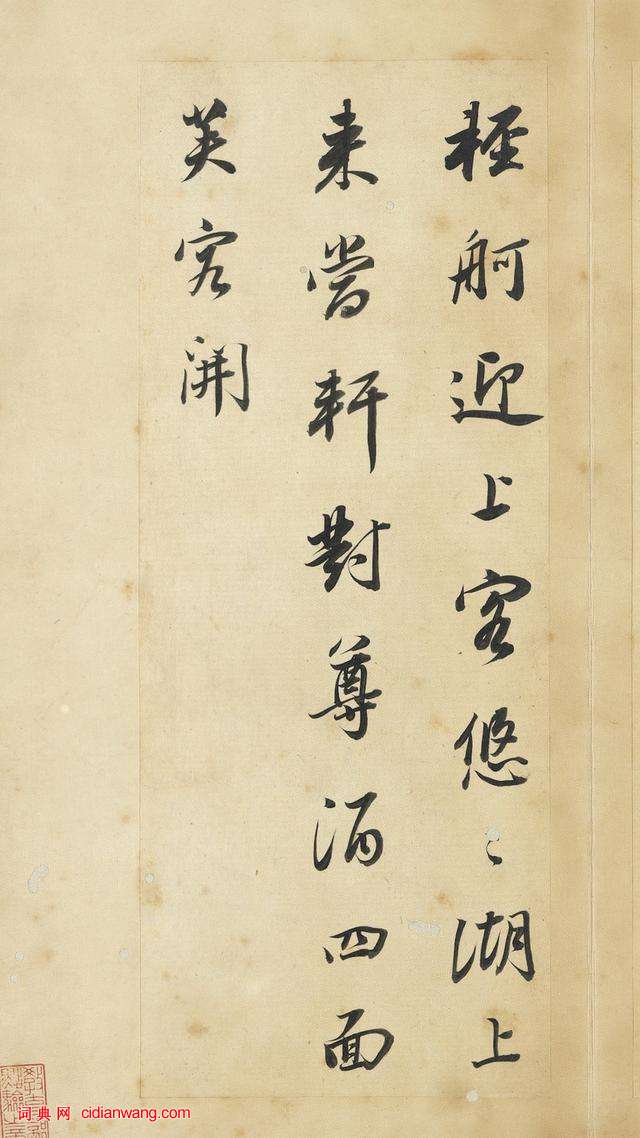 輕舸迎上客悠〻湖上
來當軒對尊酒四面
芙容開
词典网 cidianwang.com